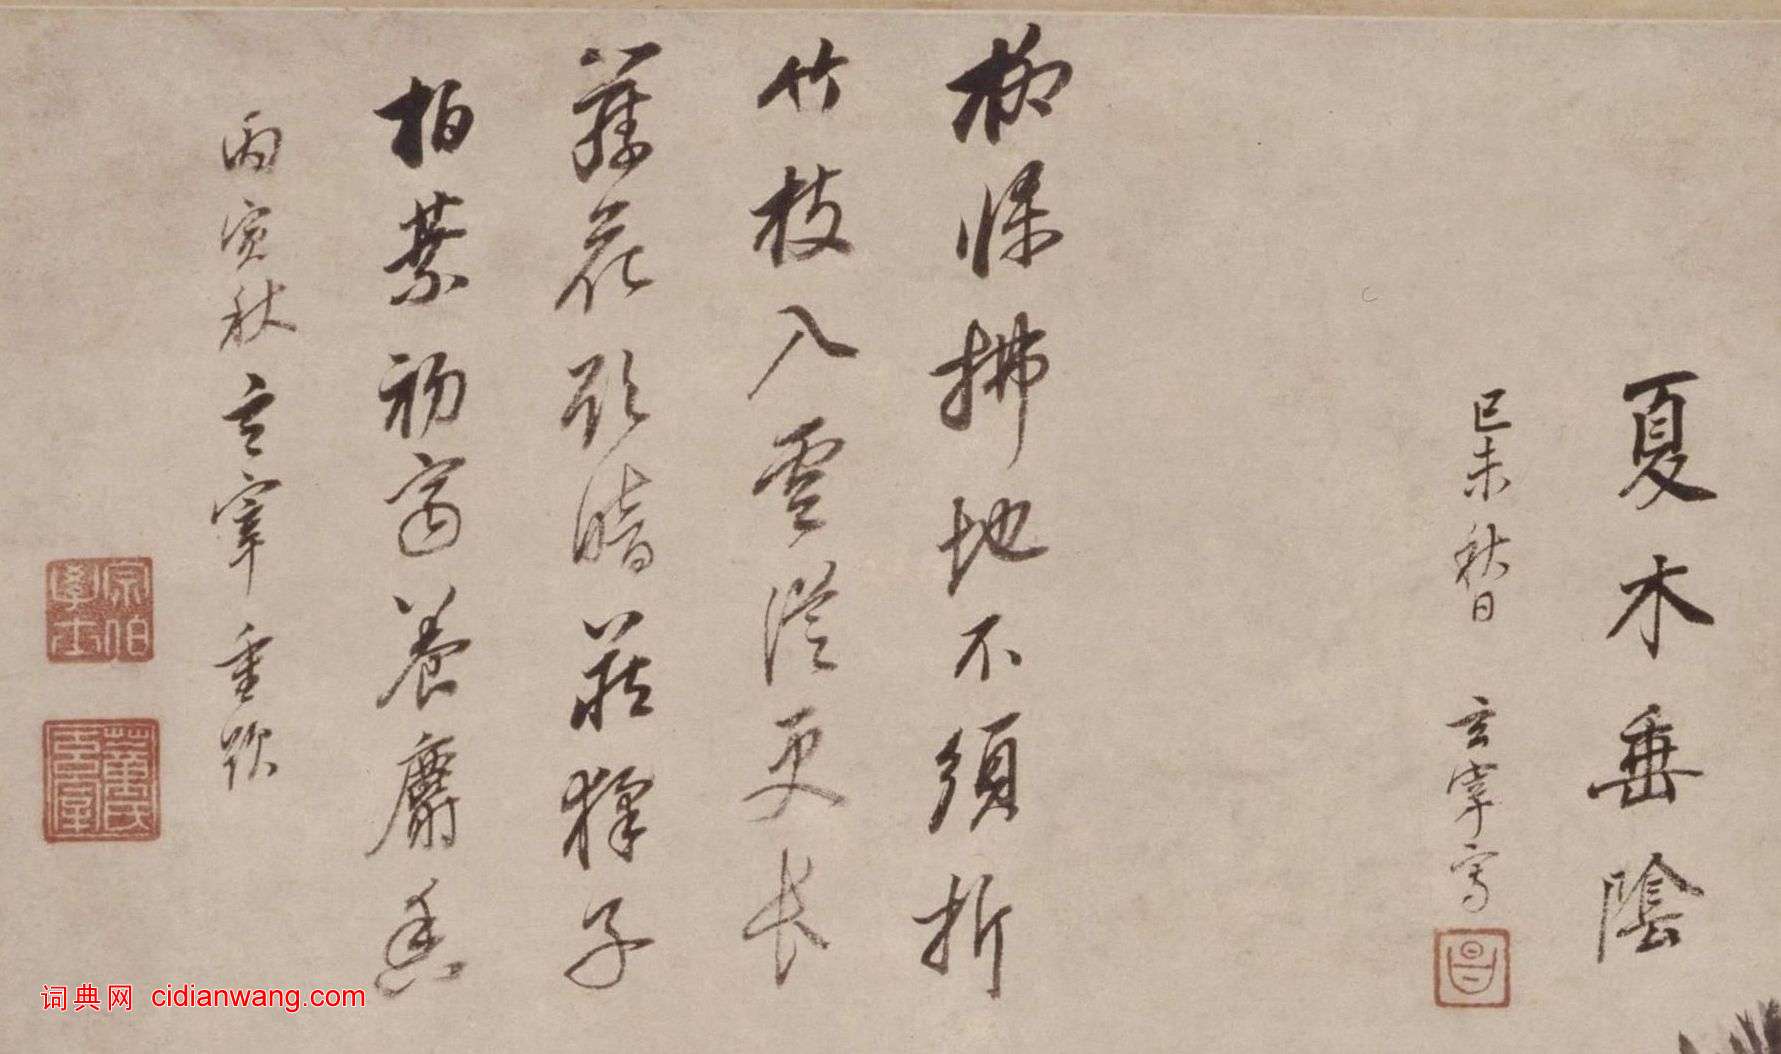 夏木垂陰
己未秋日 玄宰寫
昌
柳條拂地不須折
竹枝入雲從更長
藤花欲暗藏猱子
柏葉初齊養麝香
丙寅秋玄宰重題
宗伯學士
董氏玄宰
词典网 cidianwang.com